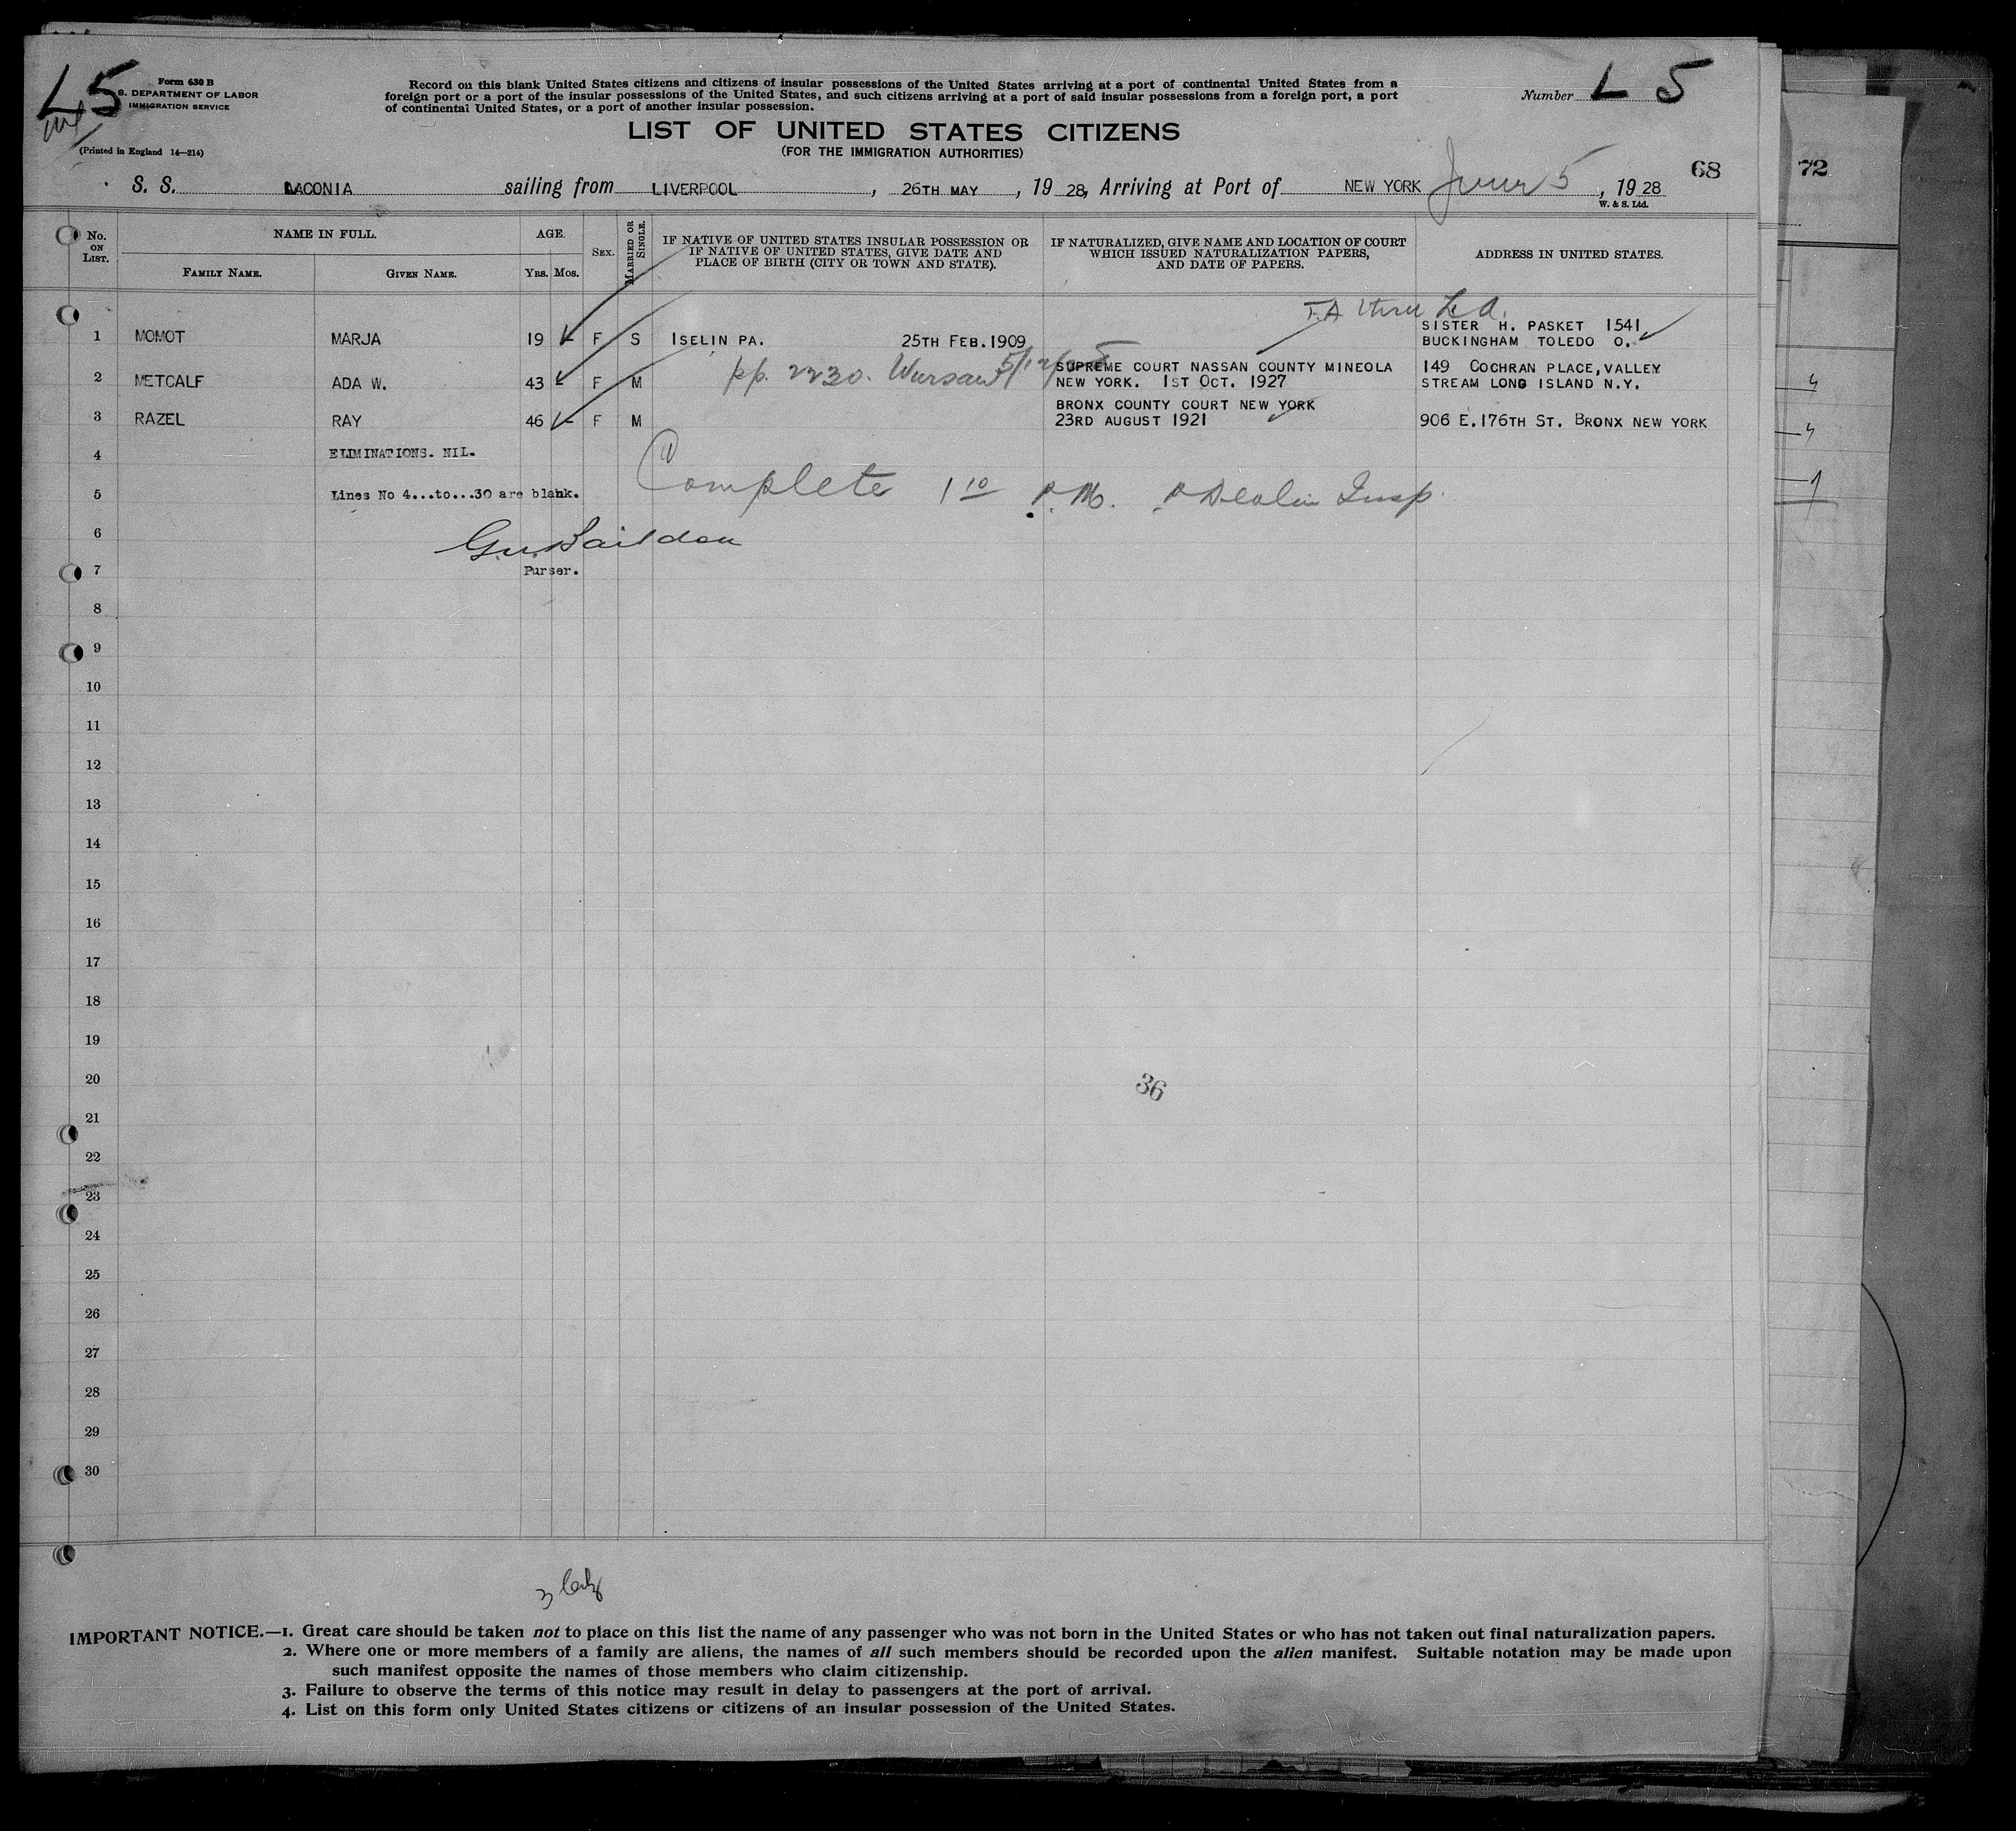 L 5
Form 630 B
S. DEPARTMENT OF LABOR
IMMIGRATION SERVICE
(Printed in England 14—214)
Record on this blank United States citizens and citizens of insular possessions of the United States arriving at a port of continental United States from a
foreign port or a port of the insular possessions of the United States, and such citizens arriving at a port of said insular possessions from a foreign port, a port
of continental United States, or a port of another insular possession.
Number L 5
LIST OF UNITED STATES CITIZENS
(FOR THE IMMIGRATION AUTHORITIES)
68
72
S. S. LACONIA sailing from LIVERPOOL, 26TH MAY, 19 28, Arriving at Port of NEW YORK June 5, 19 28
W. & S. Ltd.
No. ON LIST.
NAME IN FULL.
FAMILY NAME.
GIVEN NAME.
AGE.
YRS. MOS.
SEX.
MARRIED OR SINGLE.
IF NATIVE OF UNITED STATES INSULAR POSSESSION OR
IF NATIVE OF UNITED STATES, GIVE DATE AND
PLACE OF BIRTH (CITY OR TOWN AND STATE).
IF NATURALIZED, GIVE NAME AND LOCATION OF COURT
WHICH ISSUED NATURALIZATION PAPERS,
AND DATE OF PAPERS.
ADDRESS IN UNITED STATES.
T.A thru
1 MOMOT MARJA 19 F S ISELIN PA. 25TH FEB. 1909 SISTER H. PASKET 1541
BUCKINGHAM TOLEDO O.
pp. 2230. Warsaw
2 METCALF ADA W. 43 F M SUPREME COURT NASSAN COUNTY MINEOLA
NEW YORK. 1ST OCT. 1927
149 COCHRAN PLACE, VALLEY
STREAM LONG ISLAND N.Y.
3 RAZEL RAY 46 F M BRONX COUNTY COURT NEW YORK
23RD AUGUST 1921
906 E. 176TH ST. BRONX NEW YORK
4 ELIMINATIONS. NIL.
5 Lines No 4...to...30 are blank.
Complete 1 10 P.M. Insp.
6
Purser.
7
8
9
10
11
12
13
14
15
16
17
18
19
20
36
21
22
23
24
25
26
27
28
29
30
3
IMPORTANT NOTICE.—1. Great care should be taken not to place on this list the name of any passenger who was not born in the United States or who has not taken out final naturalization papers.
2. Where one or more members of a family are aliens, the names of all such members should be recorded upon the alien manifest. Suitable notation may be made upon
such manifest opposite the names of those members who claim citizenship.
3. Failure to observe the terms of this notice may result in delay to passengers at the port of arrival.
4. List on this form only United States citizens or citizens of an insular possession of the United States.